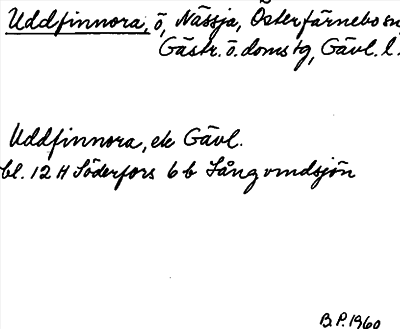 Uddfinnora, ö, Nässja, Österfärnebo sn,
Gästr. ö. domstg, Gävl. l.
Uddfinnora, ek Gävl.
bl. 12 H Söderfors 6 b Långvindsjön
B.P. 1960